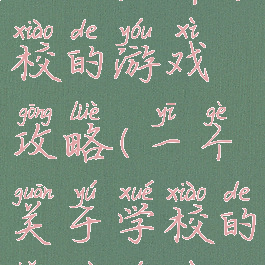 xiào de yóu xì
校的游戏
gōng lüè yī gè
攻略(一个
guān yú xué xiào de
关于学校的